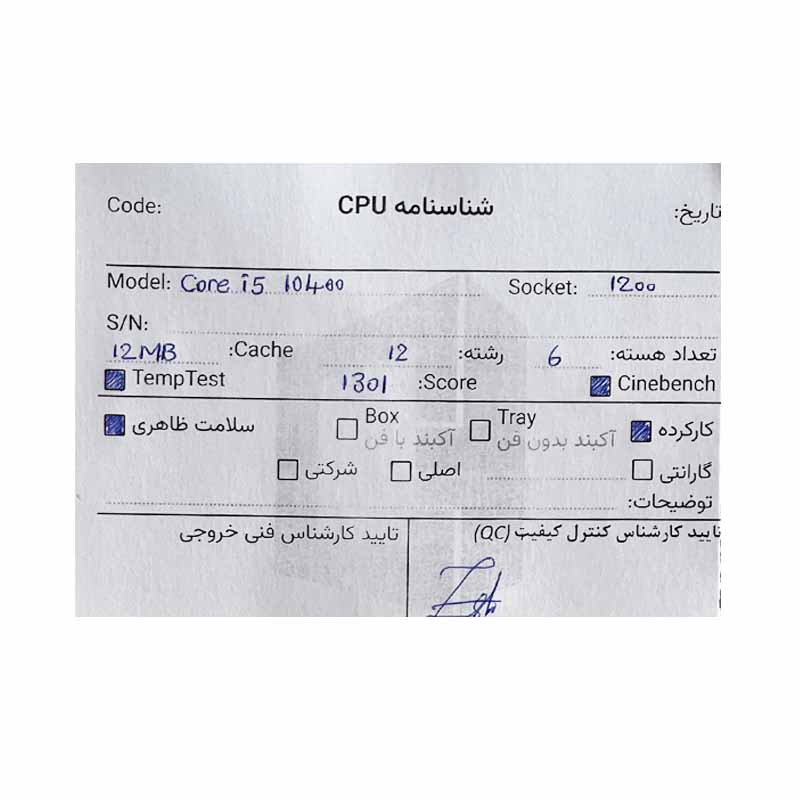 Code: شناسنامه CPU تاریخ:
Model: Core i5 10400 Socket: 1200
S/N:
تعداد هسته: 6 رشته: 12 Cache: 12MB
Cinebench Score: 1301 TempTest
کارکرده Tray آکبند بدون فن Box آکبند با فن سلامت ظاهری
گارانتی اصلی شرکتی
توضیحات:
تایید کارشناس کنترل کیفیت (QC) تایید کارشناس فنی خروجی